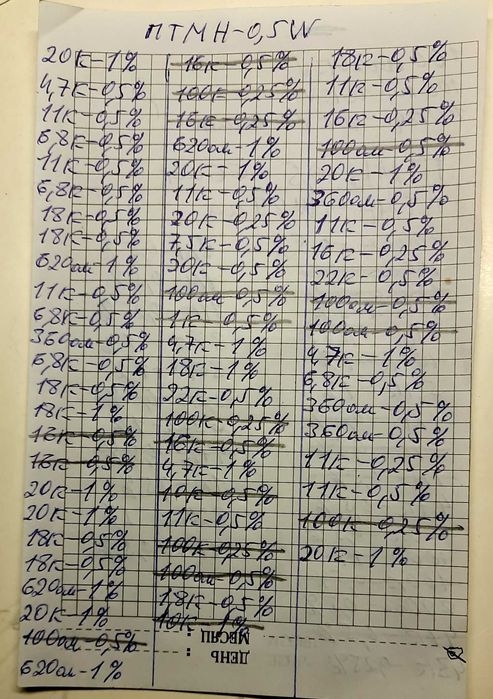 ПТМН-0,5W
20К-1%
4,7К-0,5%
11К-0,5%
6,8К-0,5%
11К-0,5%
6,8К-0,5%
18К-0,5%
18К-0,5%
620ом-1%
11К-0,5%
6,8К-0,5%
360ом-0,5%
6,8К-0,5%
18К-0,5%
18К-1%
16К-0,5%
16К-0,5%
20К-1%
20К-1%
18К-0,5%
18К-0,5%
620ом-1%
20К-1%
100ом-0,5%
620ом-1%
16К-0,5%
100К-0,25%
16К-0,25%
620ом-1%
20К-1%
11К-0,5%
20К-0,25%
7,5К-0,5%
30К-0,5%
100ом-0,5%
1К-0,5%
4,7К-1%
18К-1%
22К-0,5%
100К-0,25%
16К-0,5%
4,7К-1%
10К-0,5%
11К-0,5%
100К-0,25%
100ом-0,5%
1,8К-0,5%
10К-1%
18К-0,5%
11К-0,5%
16К-0,25%
100ом-0,5%
20К-1%
360ом-0,5%
11К-0,5%
16К-0,25%
22К-0,5%
100ом-0,5%
100ом-0,5%
4,7К-1%
6,8К-0,5%
360ом-0,5%
360ом-0,5%
11К-0,25%
11К-0,5%
100К-0,25%
20К-1%
МЕСЯЦ :
ДЕНЬ :